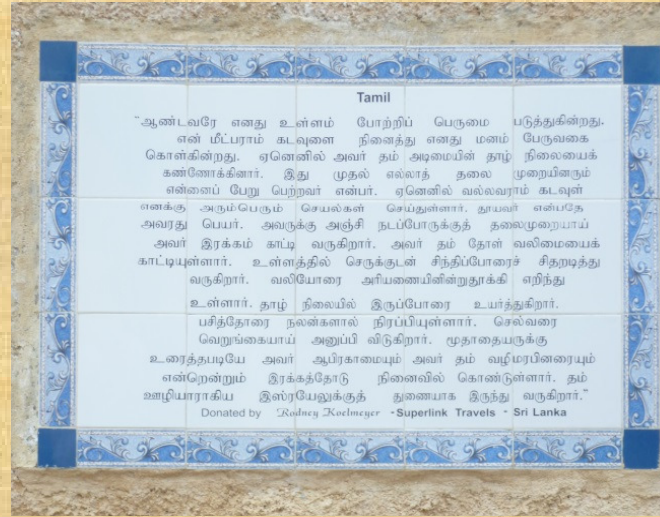 Tamil
"ஆண்டவரே எனது உள்ளம் போற்றிப் பெருமை படுத்துகின்றது.
என் மீட்பராம் கடவுளை நினைத்து எனது மனம் பேருவகை
கொள்கின்றது. ஏனெனில் அவர் தம் அடிமையின் தாழ் நிலையைக்
கண்ணோக்கினார். இது முதல் எல்லாத் தலை முறையினரும்
என்னைப் பேறு பெற்றவர் என்பர். ஏனெனில் வல்லவராம் கடவுள்
எனக்கு அரும்பெரும் செயல்கள் செய்துள்ளார். தூயவர் என்பதே
அவரது பெயர். அவருக்கு அஞ்சி நடப்போருக்குத் தலைமுறையாய்
அவர் இரக்கம் காட்டி வருகிறார். அவர் தம் தோள் வலிமையைக்
காட்டியுள்ளார். உள்ளத்தில் செருக்குடன் சிந்திப்போரைச் சிதறடித்து
வருகிறார். வலியோரை அரியணையினின்றுதூக்கி எறிந்து
உள்ளார். தாழ் நிலையில் இருப்போரை உயர்த்துகிறார்.
பசித்தோரை நலன்களால் நிரப்பியுள்ளார். செல்வரை
வெறுங்கையாய் அனுப்பி விடுகிறார். மூதாதையருக்கு
உரைத்தபடியே அவர் ஆபிரகாமையும் அவர் தம் வழிமரபினரையும்
என்றென்றும் இரக்கத்தோடு நினைவில் கொண்டுள்ளார். தம்
ஊழியாராகிய இஸ்ரயேலுக்குத் துணையாக இருந்து வருகிறார்."
Donated by Rodney Koelmeyer - Superlink Travels - Sri Lanka